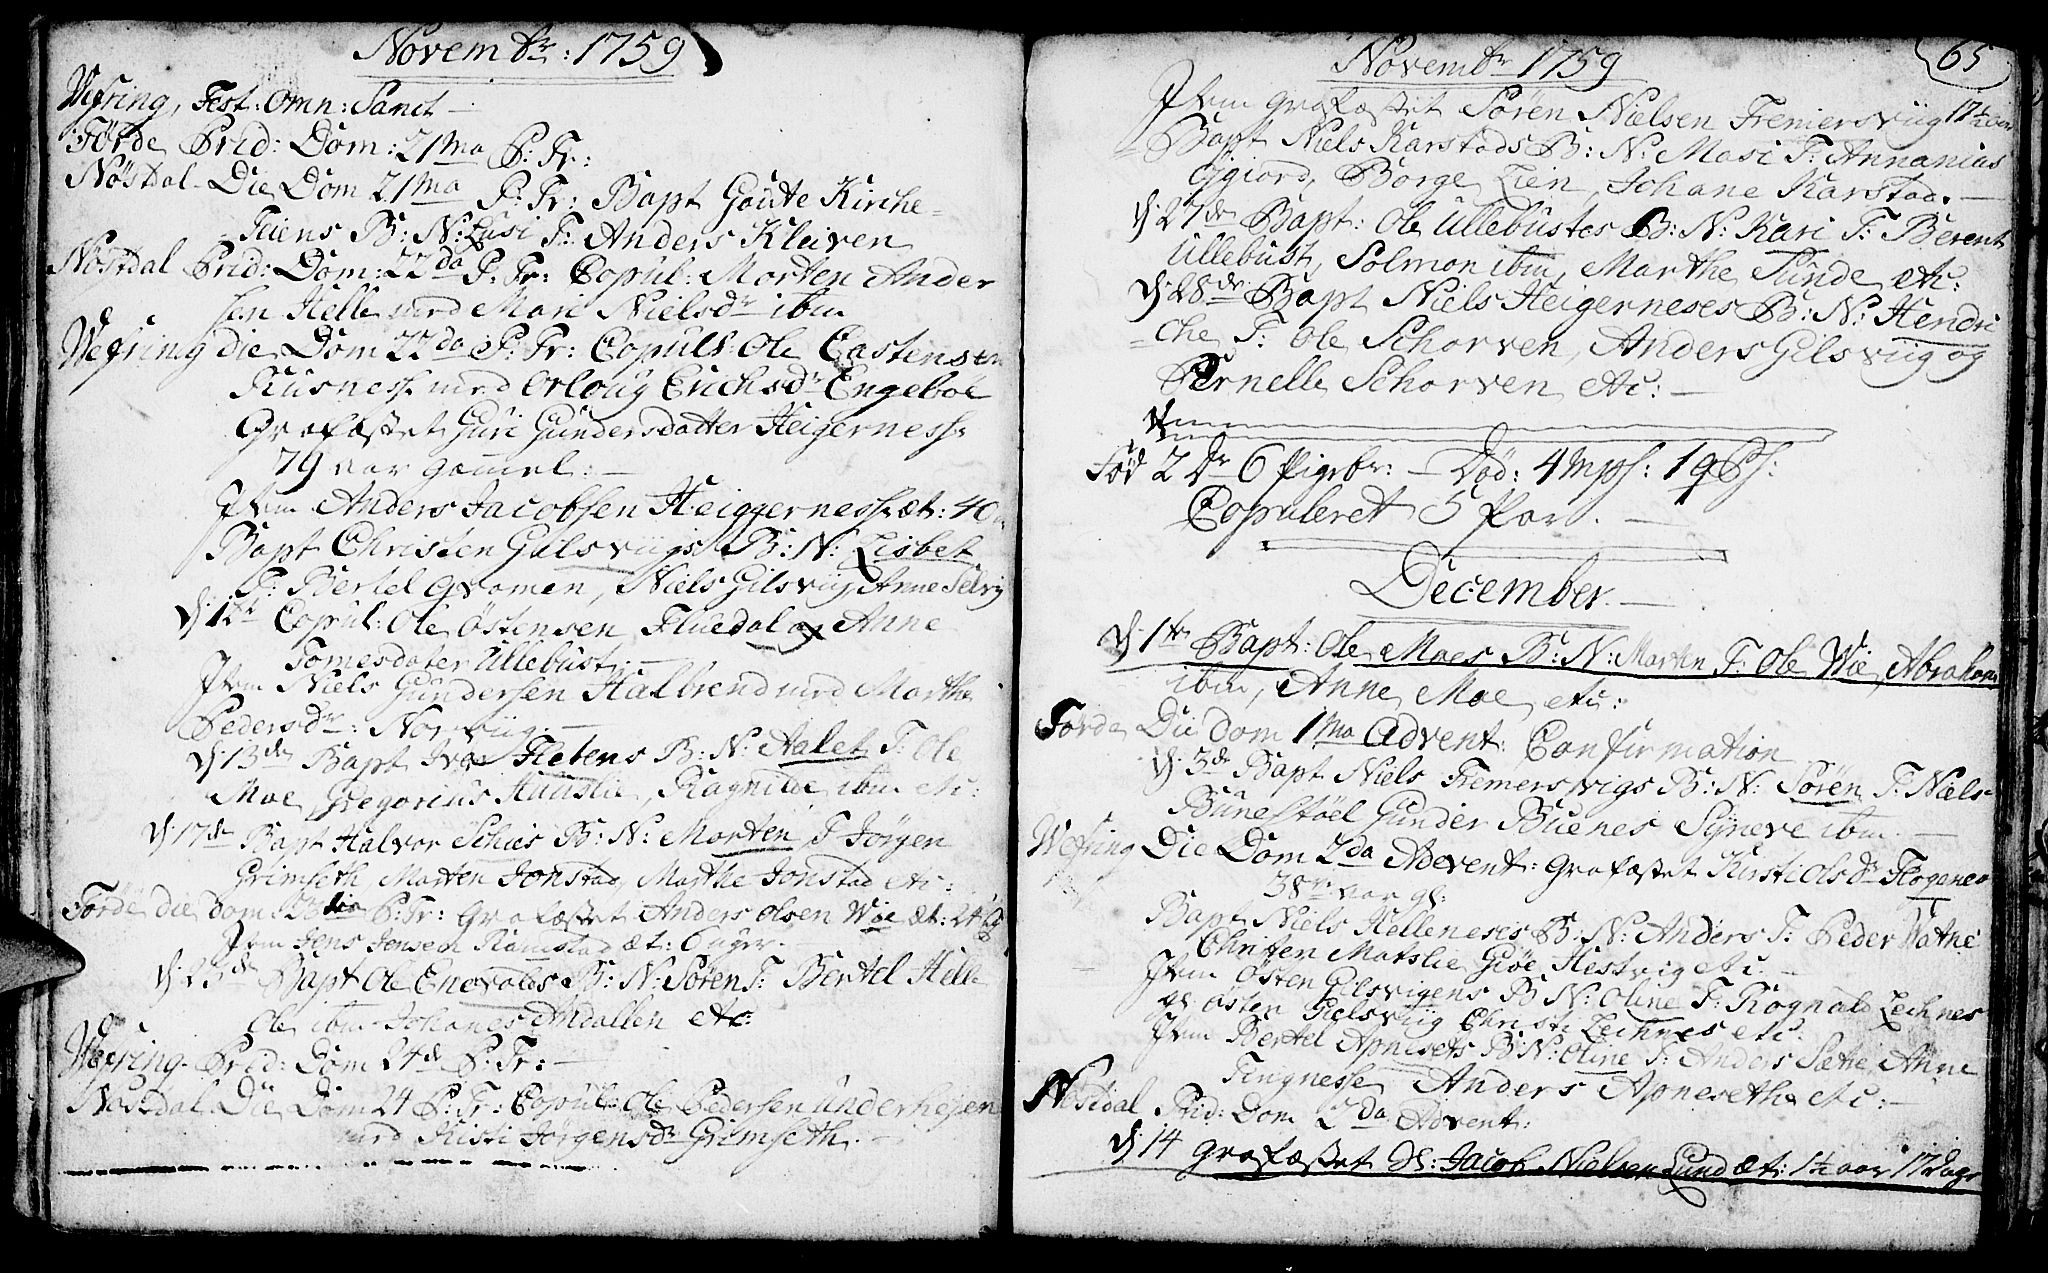 Novembr: 1759
Wefring, Fest: Omn: Sanct –
Førde Prid: Dom: 21ma P: Tr:
Nøsdal Die Dom 21ma P: Tr: Bapt Goute Kirche-
Teiens B: N: Lusi F: Anders Kleiven
Nøstdal Prid: Dom: 22da P: Tr: Copul: Morten Ander
sen Helle med Mari Nielsdr ibm
Wefring die Dom 22da P: Tr: Copul: Ole Castensen
Kusness med Orloug Erichsdr Engeboe
Grafæstet Guri Gundersdatter Heigerness
79 aar gamel: –
Item Anders Jacobsen Heiggerness æt: 40
Bapt Christen Gilsviigs B: N: Lisbet
F: Bertel Qvamen, Niels Gilsviig, Anne Selvig
d: Copul: Ole Østensen Fluedal og Anne
Tomesdater Ullebust: –
Item Niels Gundersen Halbrend med Marthe
Pedersdr: Norviig –
d: 13de Bapt Iver Fletens B: N: Aalet F: Ole
Moe, Gregorius Hauslie, Ragnilde ibm etc:
d: 17de Bapt Halvor Schies B: N: Morten F Jørgen
Grimseth, Morten Jonstad, Marthe Jonstad etc:
Førde die Dom: 23tia P: Tr: Grafæstet Anders Olsen Wie æt: 24
Item Jens Jensen Ramstad æt: 6 uger. –
d: 23de Bapt Ole Enevolds B: N: Søren F: Bertel Helle
Ole ibm Johanes Andallen etc:
Wefring. Prid: Dom 24de P: Tr: –
Nøstdal Die Dom 24 P: Tr: Copul: Ole Pedersen Underhejen
med Kisti Jørgensdr Grimseth. –
65
Novembr 1759
Item Grafæstet Søren Nielsen Fremersviig 17½ aar
Bapt Niels Karstads B: N: Masi F: Annanias
Børge Lien, Johane Karstad. –
d: 27de Bapt: Ole Ullebustes B: N: Kari F: Berent
Ullebust, Solmon ibm, Marthe Sunde etc:
d: 28de Bapt Niels Heigerneses B: N: Hendri
che F: Ole Schorven, Anders Gilsviig og
Pernelle Schorven etc: –
Fød 2 Dr 6 Pigebr: – Død: 4 Mps: 1 qPs:
Copuleret 5 Par. –
December. –
d: 1te Bapt: Ole Moes B: N: Marten F: Ole Wie, Abraham
ibm, Anne Moe etc:
Førde Die Dom 1ma Advent: Confirmation
d: 3de Bapt Niels Fremersvigs B: N: Søren F: Niels
Bunestøel Gunder Buenes Syneve ibm –
Wefring Die Dom 2da Advent: Grafæstet Kirsti Olsdr
38 aar gl:
Bapt Niels Helleneses B: N: Anders F: Peder Watne
Christen Matslie Giøe Hestvig etc: –
Item Østen Gilsvigens B N: Oline F: Rognald Lechnes
gl: Østen Gielsviig Christi Lechnes etc:
Item Bertel Apnesets B: N: Oline F: Anders Sætte, Anne
Tingnesse Anders Apneseth etc: –
Nøstdal Prid: Dom 2da Advent:
d: 14 Grafæstet Sl: Jacob Nielsen Lund æt: 1½ aar 17 dage